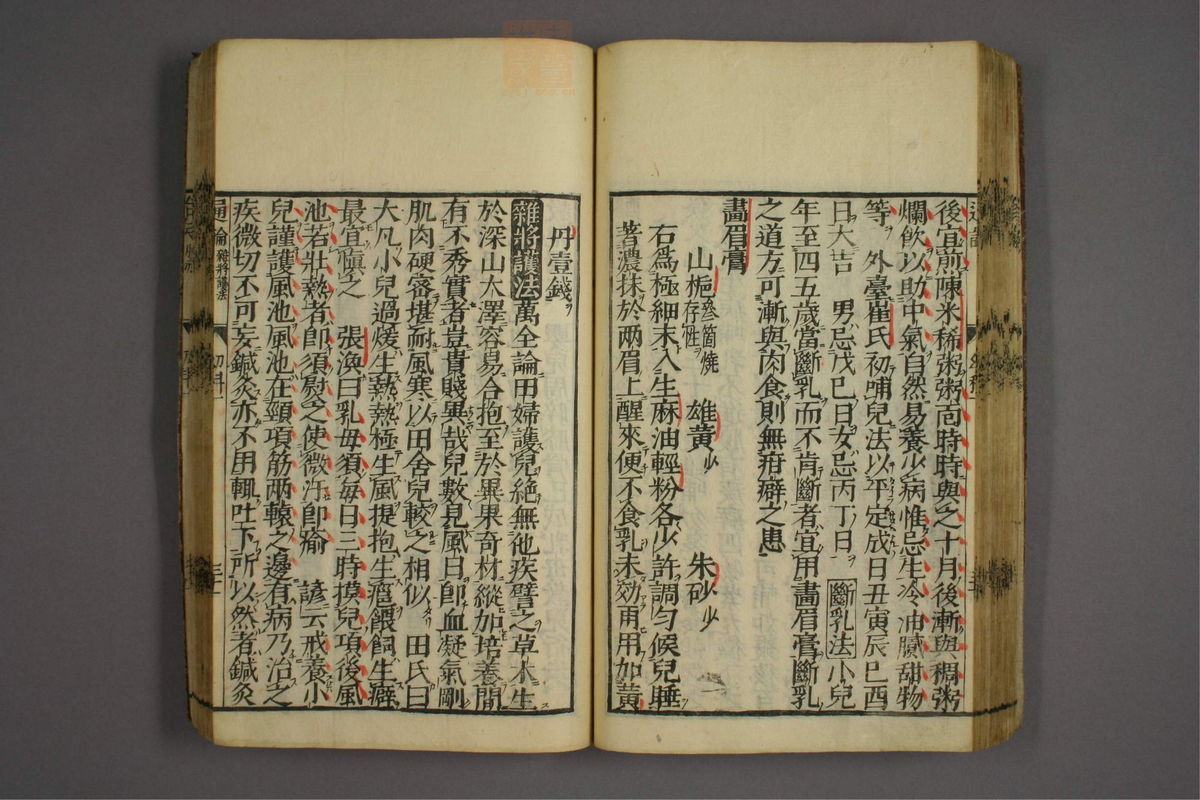 後宜煎陳米稀粥粥面時時與之十月後漸與稠粥
爛飲以助中氣自然易養少病惟忌生冷油膩甜物
等 外臺崔氏初哺兒法以平定成日丑寅辰巳酉
日大吉 男忌戊己日女忌丙丁日 斷乳法小兒
年至四五歲當斷乳而不肯斷者宜用畵眉膏斷乳
之道方可漸與肉食則無疳癖之患
畵眉膏
山梔叁箇燒存性 雄黃少 朱砂少
右爲極細末入生麻油輕粉各少許調勻候兒睡
著濃抹於兩眉上醒來便不食乳未効再用加黃
丹壹錢
雜將護法萬全論田婦護兒絶無他疾譬之草木生
於深山大澤容易合抱至於異果奇材縱加培養間
有不秀實者豈貴賤異哉兒數見風日卽血凝氣剛
肌肉硬密堪耐風寒以田舍兒較之相似 田氏曰
大凡小兒過煖生熱熱極生風提抱生癋餵飼生癖
最宜愼之 張渙曰乳母須每日三時摸兒項後風
池若壯熱者卽須熨之使微汗卽瘉 諺云戒養小
兒謹護風池風池在頸項筋兩轅之邊有病乃治之
疾微切不可妄鍼灸亦不用輒吐下所以然者鍼灸
通論 雜將護法
幼科一